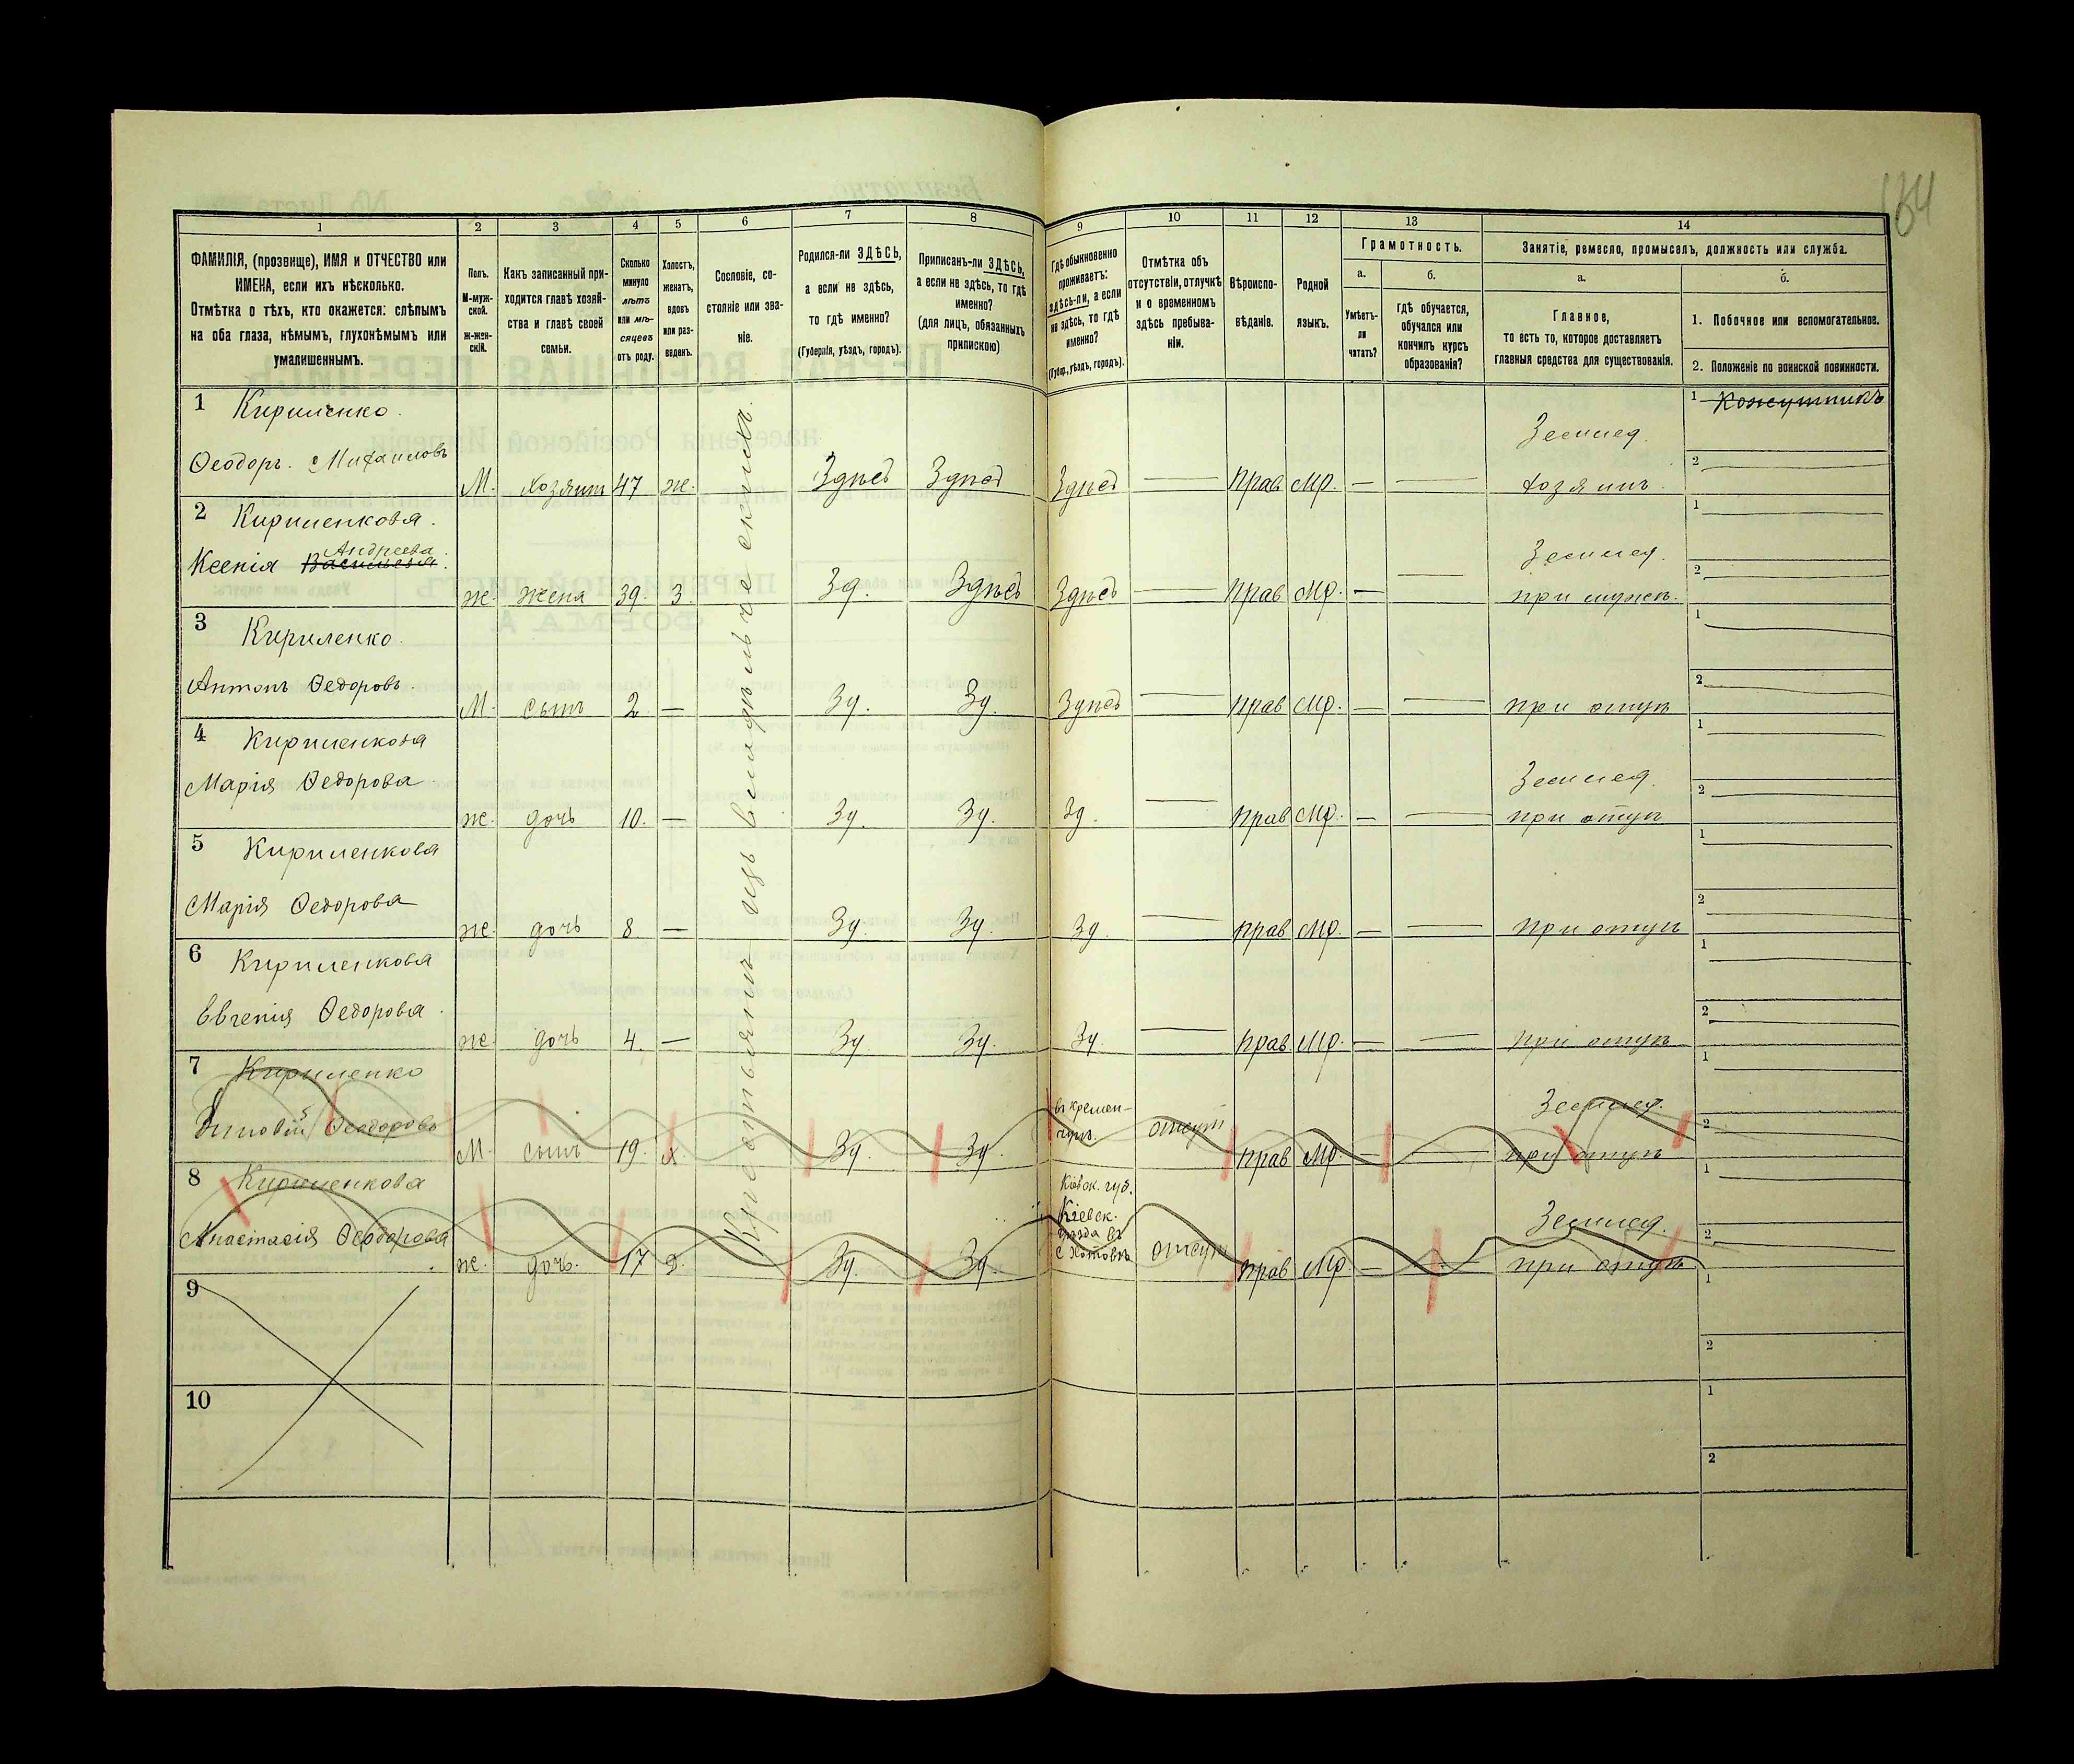 134
1 2 3 4 5 6 7 8 9 10 11 12 13 14
ФАМИЛІЯ, (прозвище), ИМЯ и ОТЧЕСТВО или
ИМЕНА, если ихъ нѣсколько.
Отмѣтка о тѣхъ, кто окажется: слѣпымъ
на оба глаза, нѣмымъ, глухонѣмымъ или
умалишеннымъ.
Полъ.
М-муж-
ской.
ж-жен-
скій.
Какъ записанный при-
ходится главѣ хозяй-
ства и главѣ своей
семьи.
Сколько
минуло
лѣтъ
или мѣ-
сяцевъ
отъ роду.
Холостъ,
женатъ,
вдовъ
или раз-
веденъ.
Сословіе, со-
стояніе или зва-
ніе.
Родился-ли ЗДѢСЬ,
а если не здѣсь,
то гдѣ именно?
(Губернія, уѣздъ, городъ).
Приписанъ-ли ЗДѢСЬ,
а если не здѣсь, то гдѣ
именно?
(для лицъ, обязанныхъ
припискою)
Гдѣ обыкновенно
проживаетъ:
здѣсь-ли, а если
не здѣсь, то гдѣ
именно?
(Губер., уѣздъ, городъ).
Отмѣтка объ
отсутствіи, отлучкѣ
и о временномъ
здѣсь пребыва-
ніи.
Вѣроиспо-
вѣданіе.
Родной
языкъ.
Грамотность.
а.
Умѣетъ-
ли
читать?
б.
гдѣ обучается,
обучался или
кончилъ курсъ
образованія?
Занятіе, ремесло, промыселъ, должность или служба.
а.
Главное,
то есть то, которое доставляетъ
главныя средства для существованія.
б.
1. Побочное или вспомогательное.
2. Положеніе по воинской повинности.
Крестьянинъ изъ владѣльческихъ.
1 Кириленко. 1 Кожушникъ
Землед.
Ѳеодоръ. Михаиловъ 2
М. хозяинъ 47 ж. Здѣсь Здѣсь Здѣсь — Прав Мр. — — хозяинъ.
2 Кириленкова. 1
Андреева. Землед.
Ксенія Васильева. 2
ж. жена 39. З. Зд. Здѣсь Здѣсь — Прав Мр. — — при мужѣ.
3 Кириленко. 1
Антонъ Ѳедоровъ. 2
М. сынъ 2 — Зд. Зд. Здѣсь — Прав Мр. — — при отцѣ
4 Кириленкова 1
Марія Ѳедорова. Землед. 2
ж. дочь 10. — Зд. Зд. Зд. — Прав Мр. — — при отцѣ
5 Кириленкова 1
Марія Ѳедорова 2
ж. дочь 8 — Зд. Зд. Зд. — Прав Мр. — — при отцѣ
6 Кириленкова 1
Евгенія Ѳедорова. 2
ж. дочь 4. — Зд. Зд. Зд. — Прав Мр. — — при отцѣ
7 Кириленко 1
въ кремен- Землед.
Ѳеодоровъ чугѣ. отсут 2
М. сынъ 19. х Зд. Зд. Прав Мр. — — при отцѣ
8 Кириленкова Кіевск. губ. 1
Кіевск. Землед.
Анастасія Ѳеодорова уѣзда въ отсут 2
с Хотовѣ
ж. дочь. 17 Зд. Зд. Прав Мр — — при отцѣ
9 1
2
10 1
2